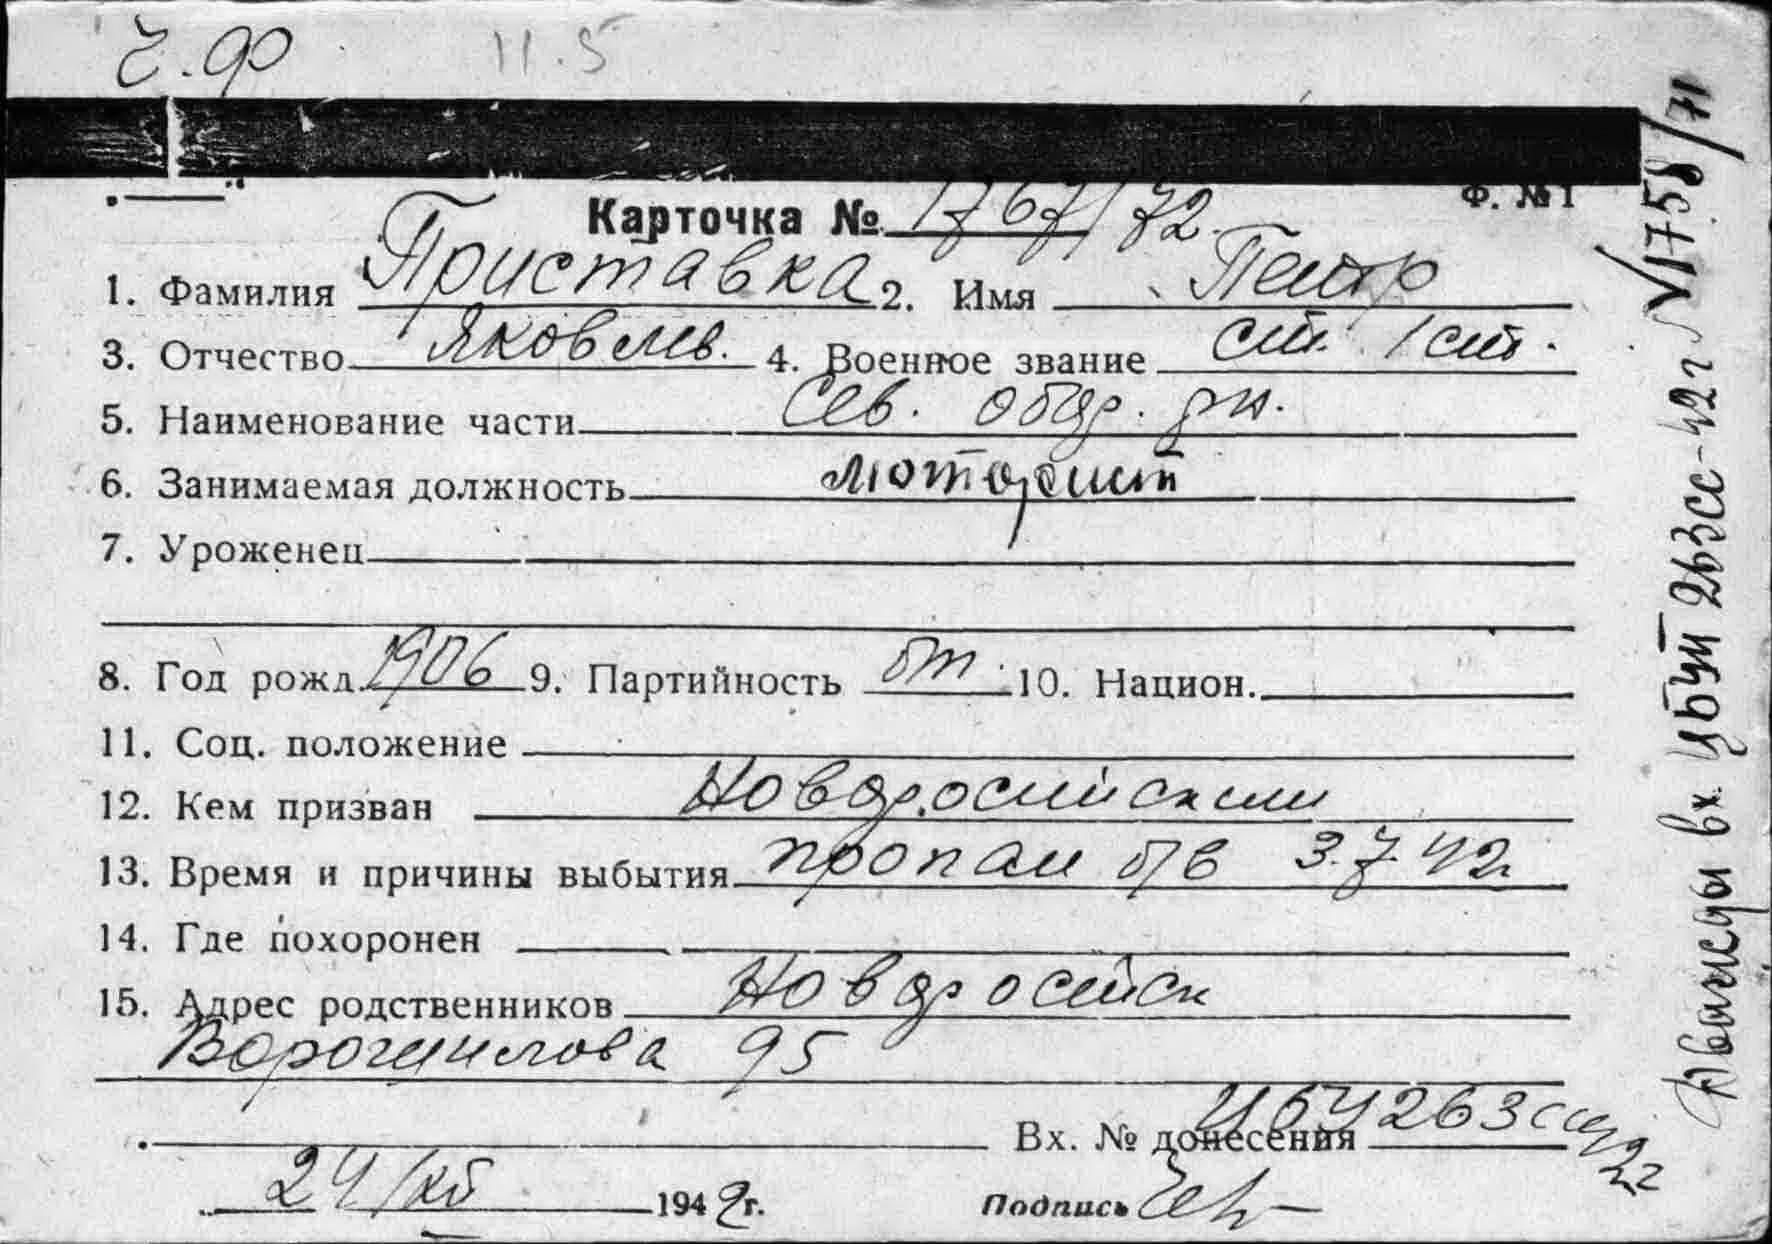 Ч.Ф 11.5
Ф. №1
Карточка № 1767/72.
1. Фамилия Приставка 2. Имя Петр
3. Отчество Яковлев. 4. Военное звание ст. 1 ст.
5. Наименование части Сев. обор. рн.
6. Занимаемая должность моторист
7. Уроженец
8. Год рожд. 1906 9. Партийность бп 10. Национ.
11. Соц. положение
12. Кем призван Новоросийским
13. Время и причины выбытия пропал б/в 3.7.42г
14. Где похоронен
15. Адрес родственников Новоросийск
Ворошилова 95
Вх. № донесения ЦБУ 263сс 42г
24/XII 1942г. Подпись
Дважды вх ЦБУП 263сс-42г № 1758/71